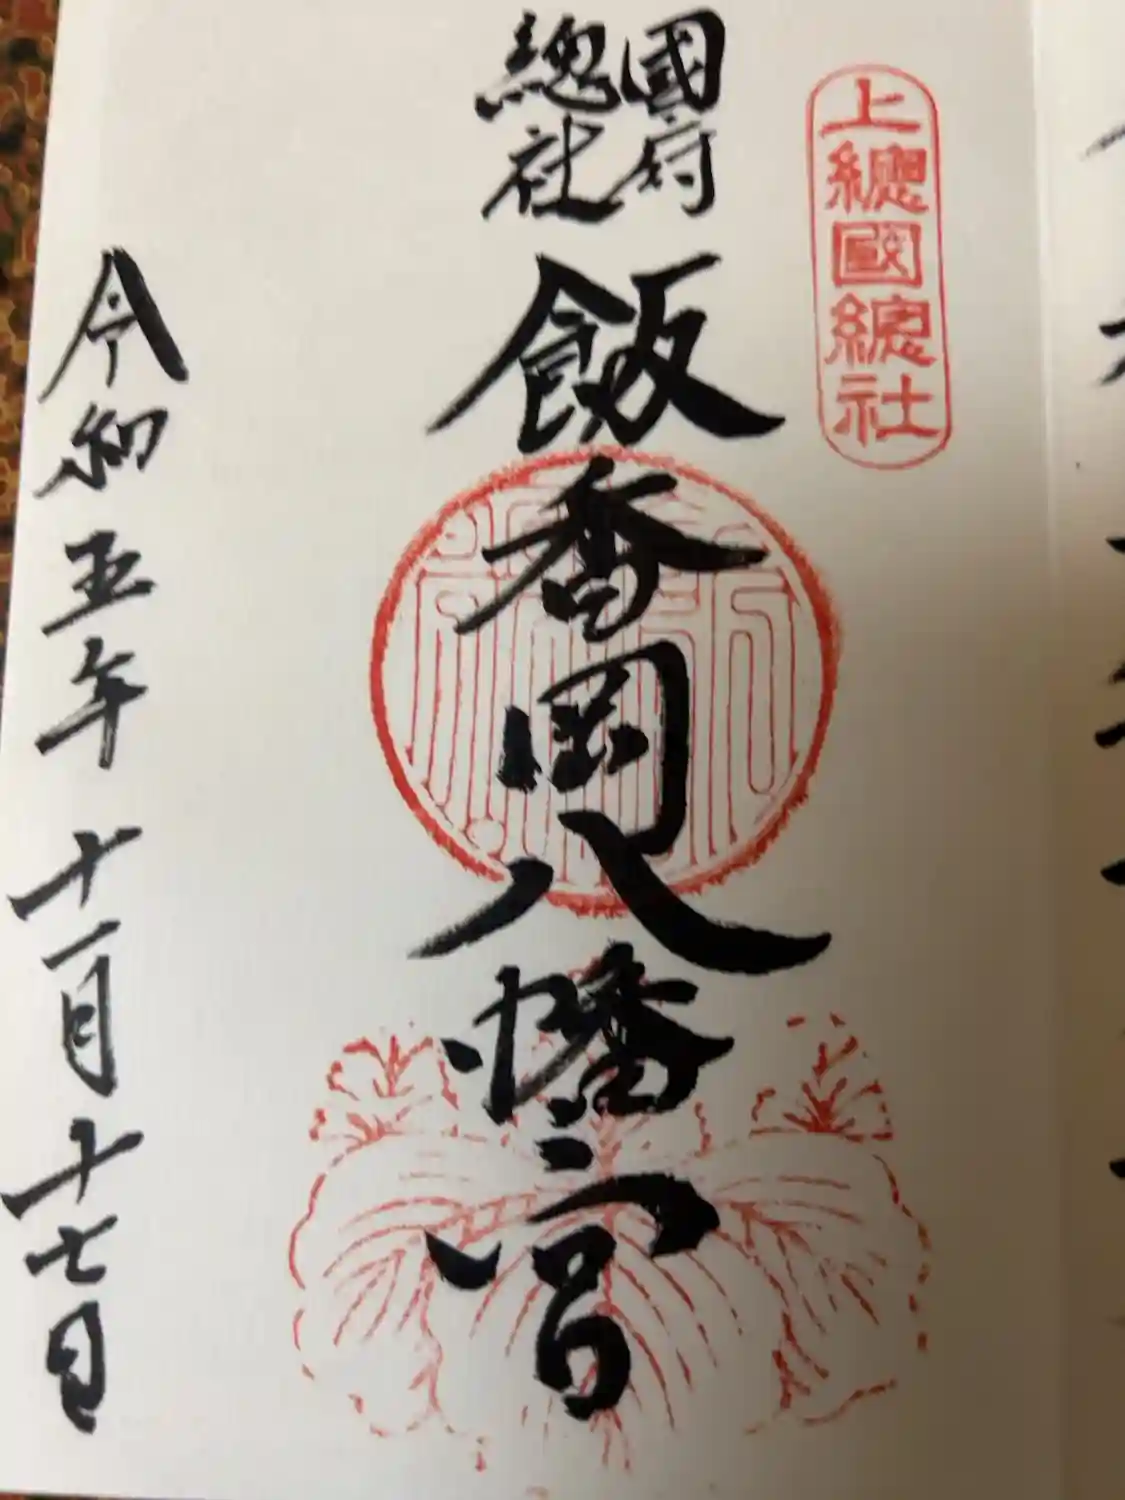 上總國總社
國府
總社
飯香岡八幡宮
令和五年十一月十七日